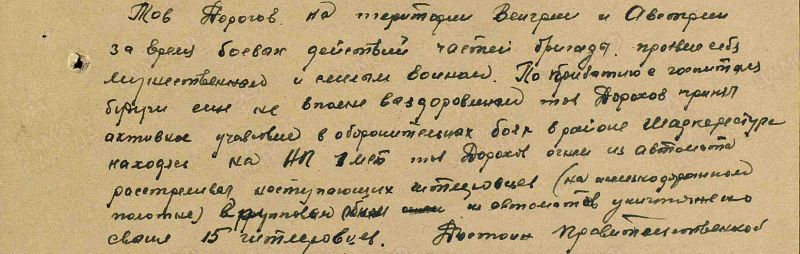 Тов Дорогов. на територии Венгрии и Австрии
за время боевых действий частей бригады. проявил себя
мужественным и смелым воином. По прибытию с госпиталя
будучи еще не вполне выздоровленым тов Дорохов принял
активное участие в оборонительных боях в районе
находясь на НП 1 мсб тов Дорохов огнем из автомата
расстреливал наступающих гитлеровцев (на железнодорожном
полотне) в групповом из автоматов уничтожено
свыше 15 гитлеровцев. Достоин Правительственной